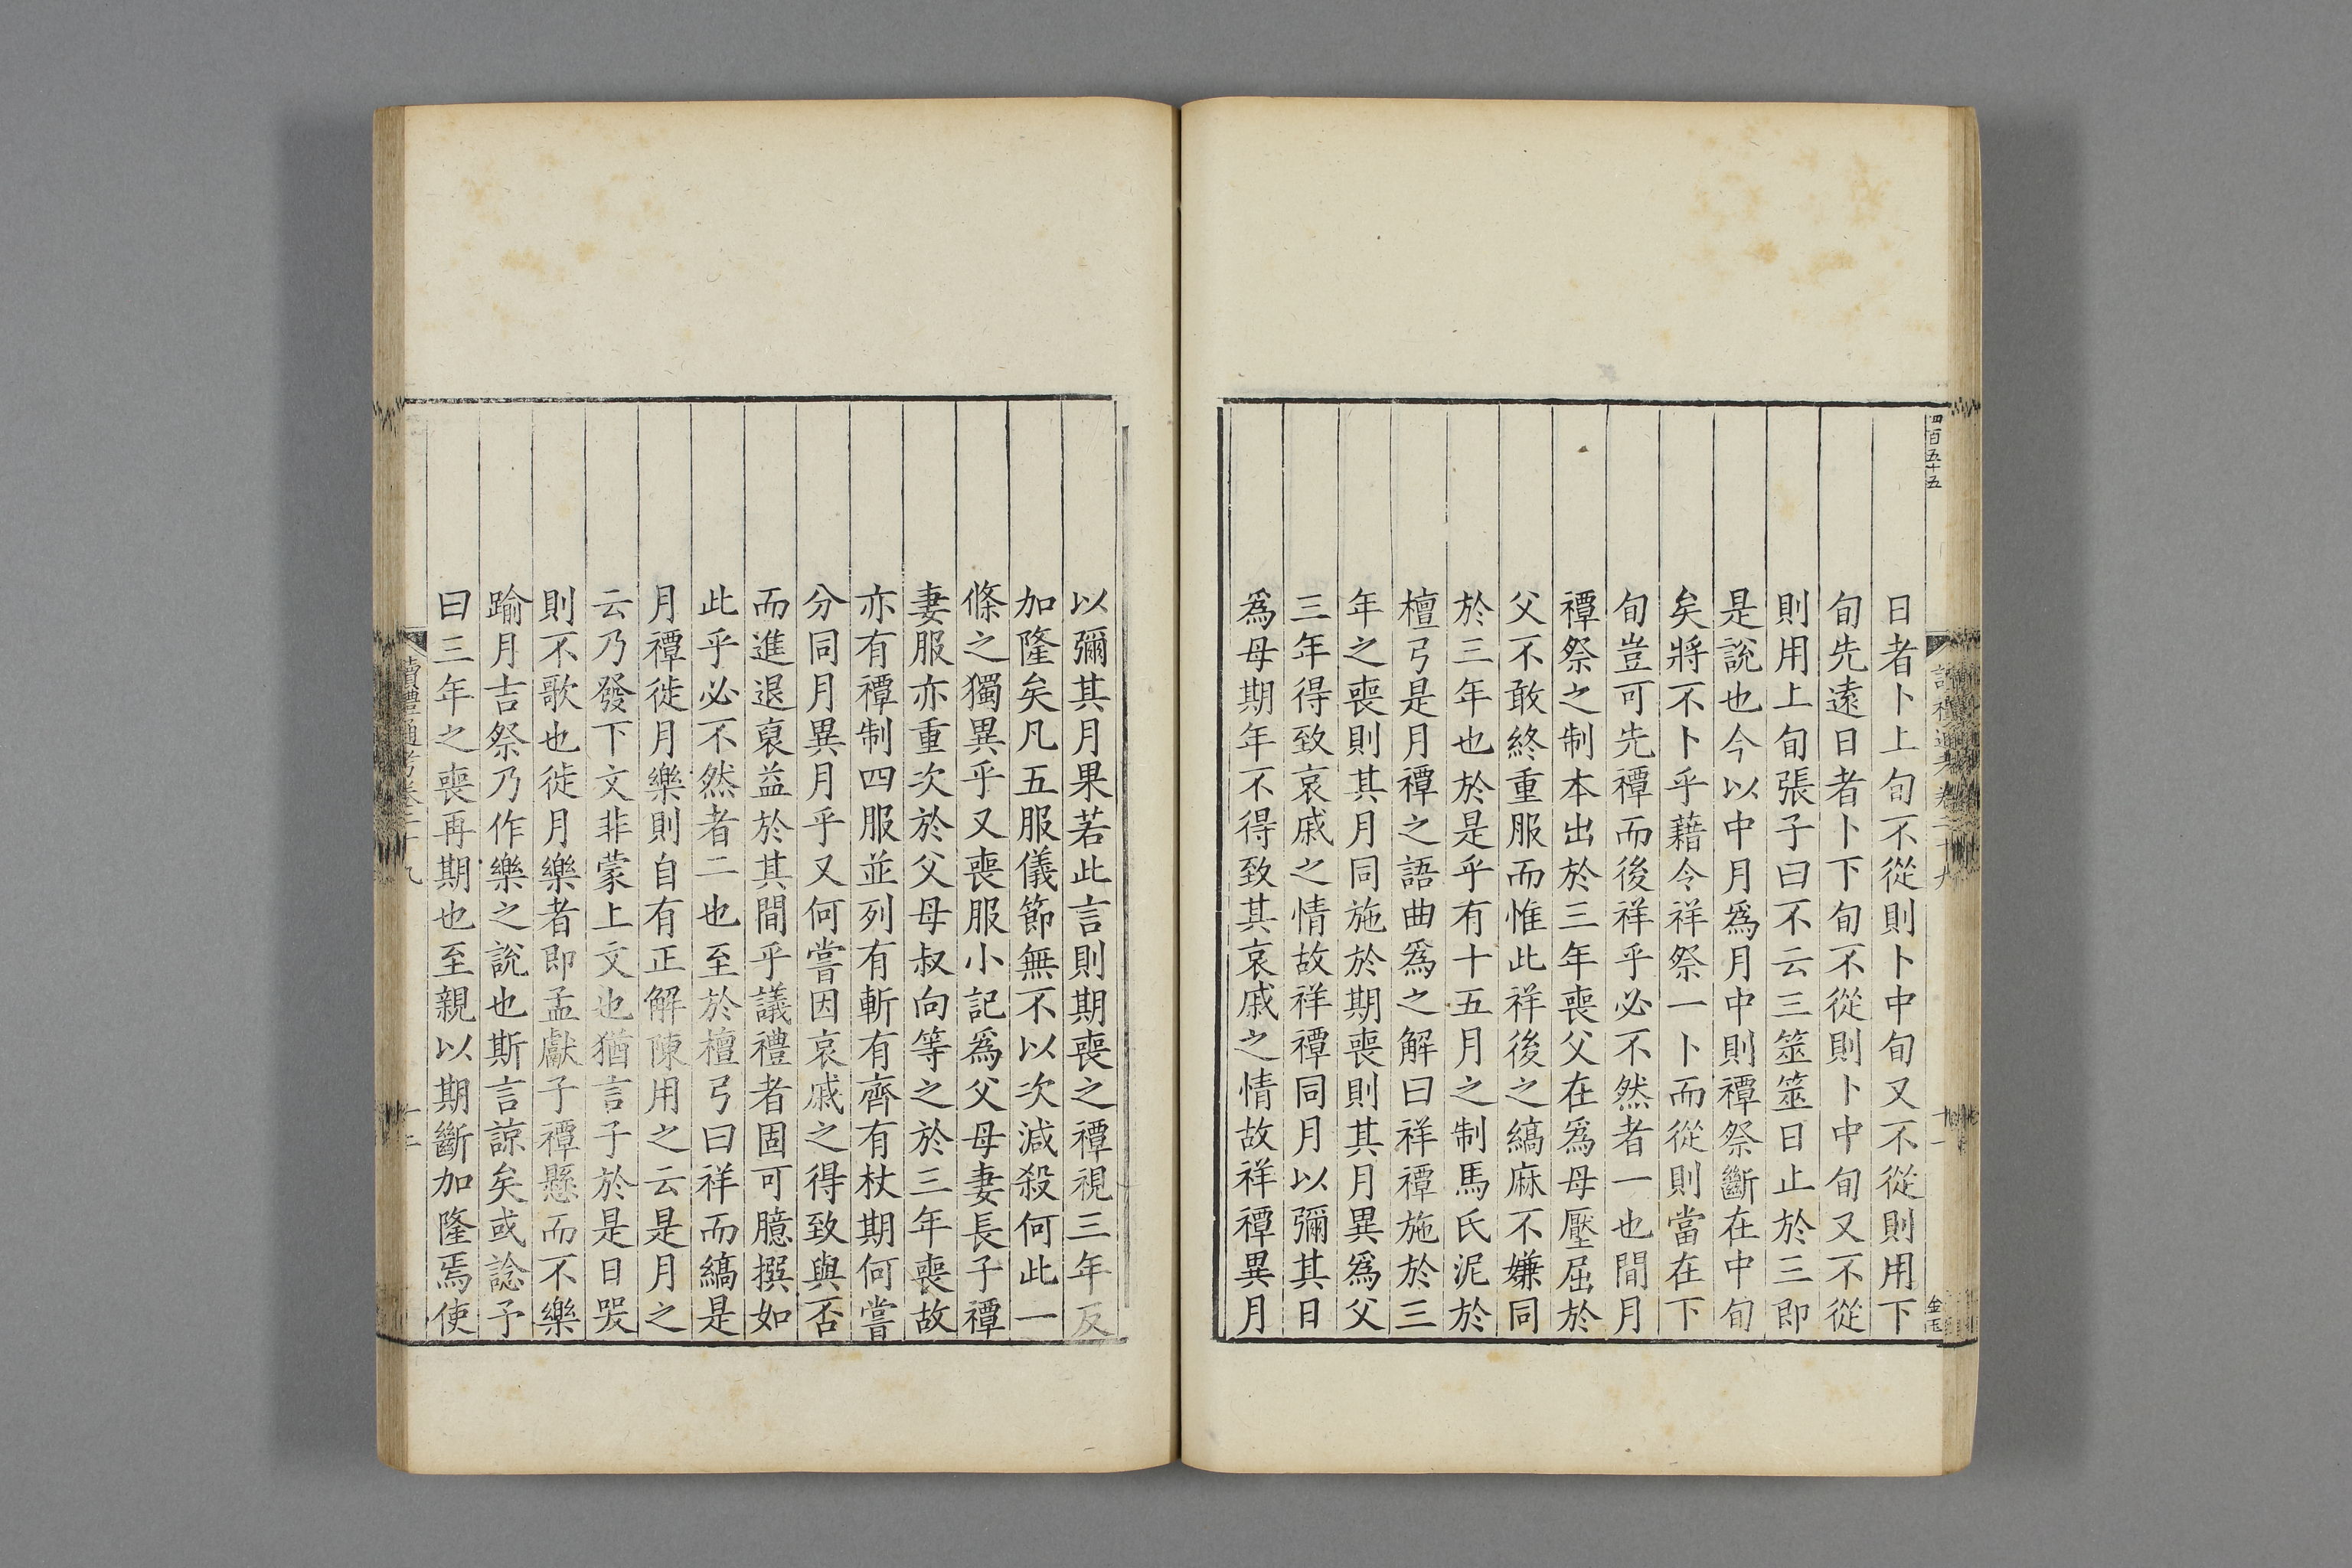 四百五十五
日者卜上旬不從則卜中旬又不從則用下
旬先遠日者卜下旬不從則卜中旬又不從
則用上旬張子曰不云三筮筮日止於三即
是說也今以中月爲月中則禫祭斷在中旬
矣將不卜乎藉令祥祭一卜而從則當在下
旬豈可先禫而後祥乎必不然者一也間月
禫祭之制本出於三年喪父在爲母壓屈於
父不敢終重服而惟此祥後之縞麻不嫌同
於三年也於是乎有十五月之制馬氏泥於
檀弓是月禫之語曲爲之解曰祥禫施於三
年之喪則其月同施於期喪則其月異爲父
三年得致哀戚之情故祥禫同月以彌其日
爲母期年不得致其哀戚之情故祥禫異月
以彌其月果若此言則期喪之禫視三年反
加隆矣凡五服儀節無不以次減殺何此一
條之獨異乎又喪服小記爲父母妻長子禫
妻服亦重次於父母叔向等之於三年喪故
亦有禫制四服並列有斬有齊有杖期何嘗
分同月異月乎又何嘗因哀戚之得致與否
而進退裒益於其間乎議禮者固可臆撰如
此乎必不然者二也至於檀弓曰祥而縞是
月禫徙月樂則自有正解陳用之云是月之
云乃發下文非蒙上文也猶言子於是日哭
則不歌也徙月樂者即孟獻子禫懸而不樂
踰月吉祭乃作樂之說也斯言諒矣或諗予
曰三年之喪再期也至親以期斷加隆焉使
讀禮通考卷二十九